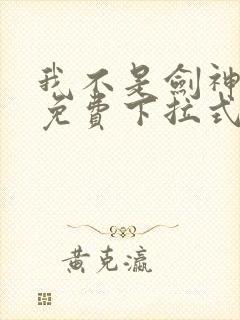 我不是劍神
免費下拉式
黃克瀛